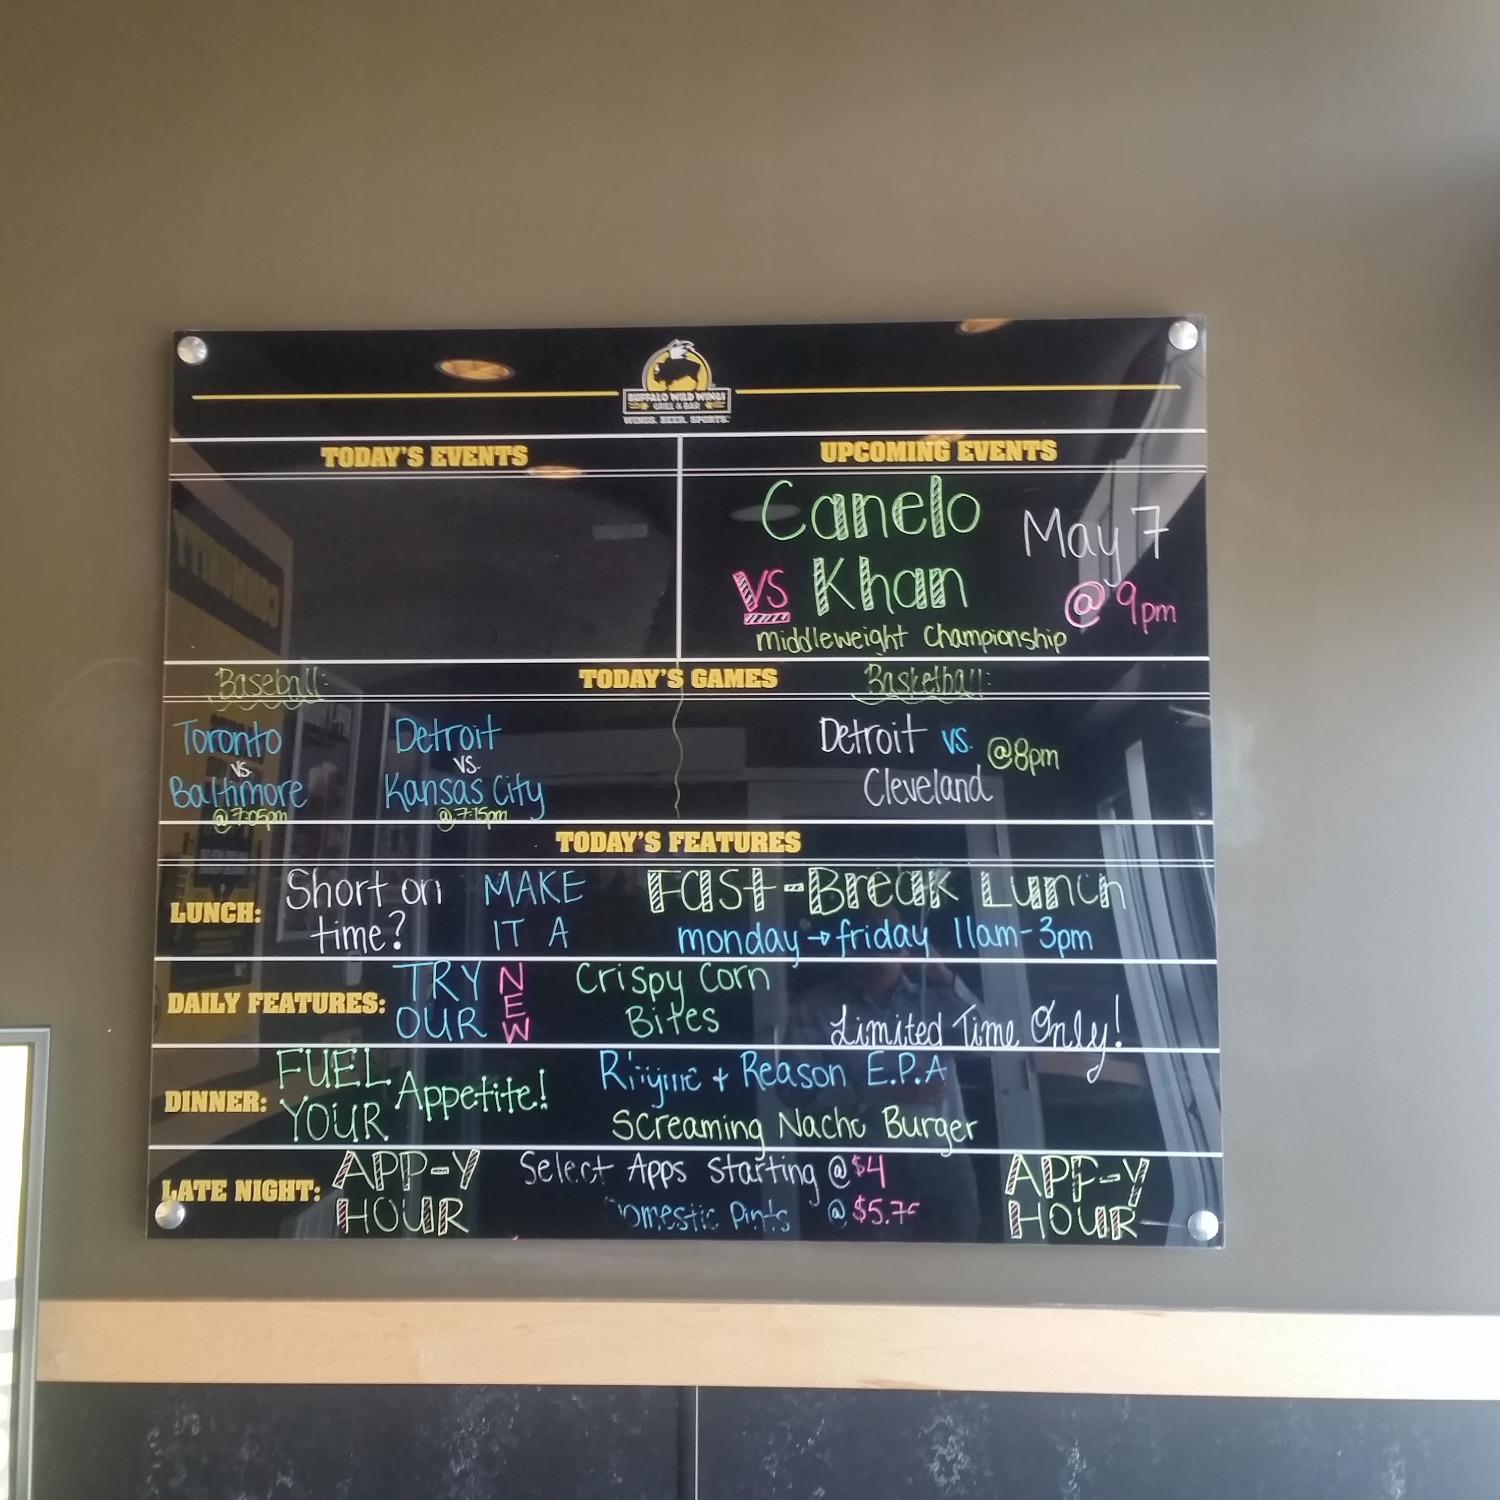 BUFFALO WILD WINGS
GRILL & BAR
WINGS. BEER. SPORTS.
TODAY'S EVENTS
UPCOMING EVENTS
Canelo
VS Khan
May 7
@ 9pm
Middleweight Championship
TODAY'S GAMES
Baseball:
Basketball:
Toronto
vs.
Baltimore
@ 7:05pm
Detroit
vs.
Kansas City
@ 7:15pm
Detroit vs.
Cleveland
@8pm
TODAY'S FEATURES
LUNCH:
Short on
time?
MAKE
IT A
Fast-Break Lunch
monday → friday 11am-3pm
DAILY FEATURES:
TRY
OUR
NEW
Crispy Corn
Bites
Limited Time Only!
DINNER:
FUEL
YOUR
Appetite!
+ Reason E.P.A
Screaming Nacho Burger
LATE NIGHT:
APP-Y
HOUR
Select Apps Starting @ $4
Domestic Pints @
APP-Y
HOUR